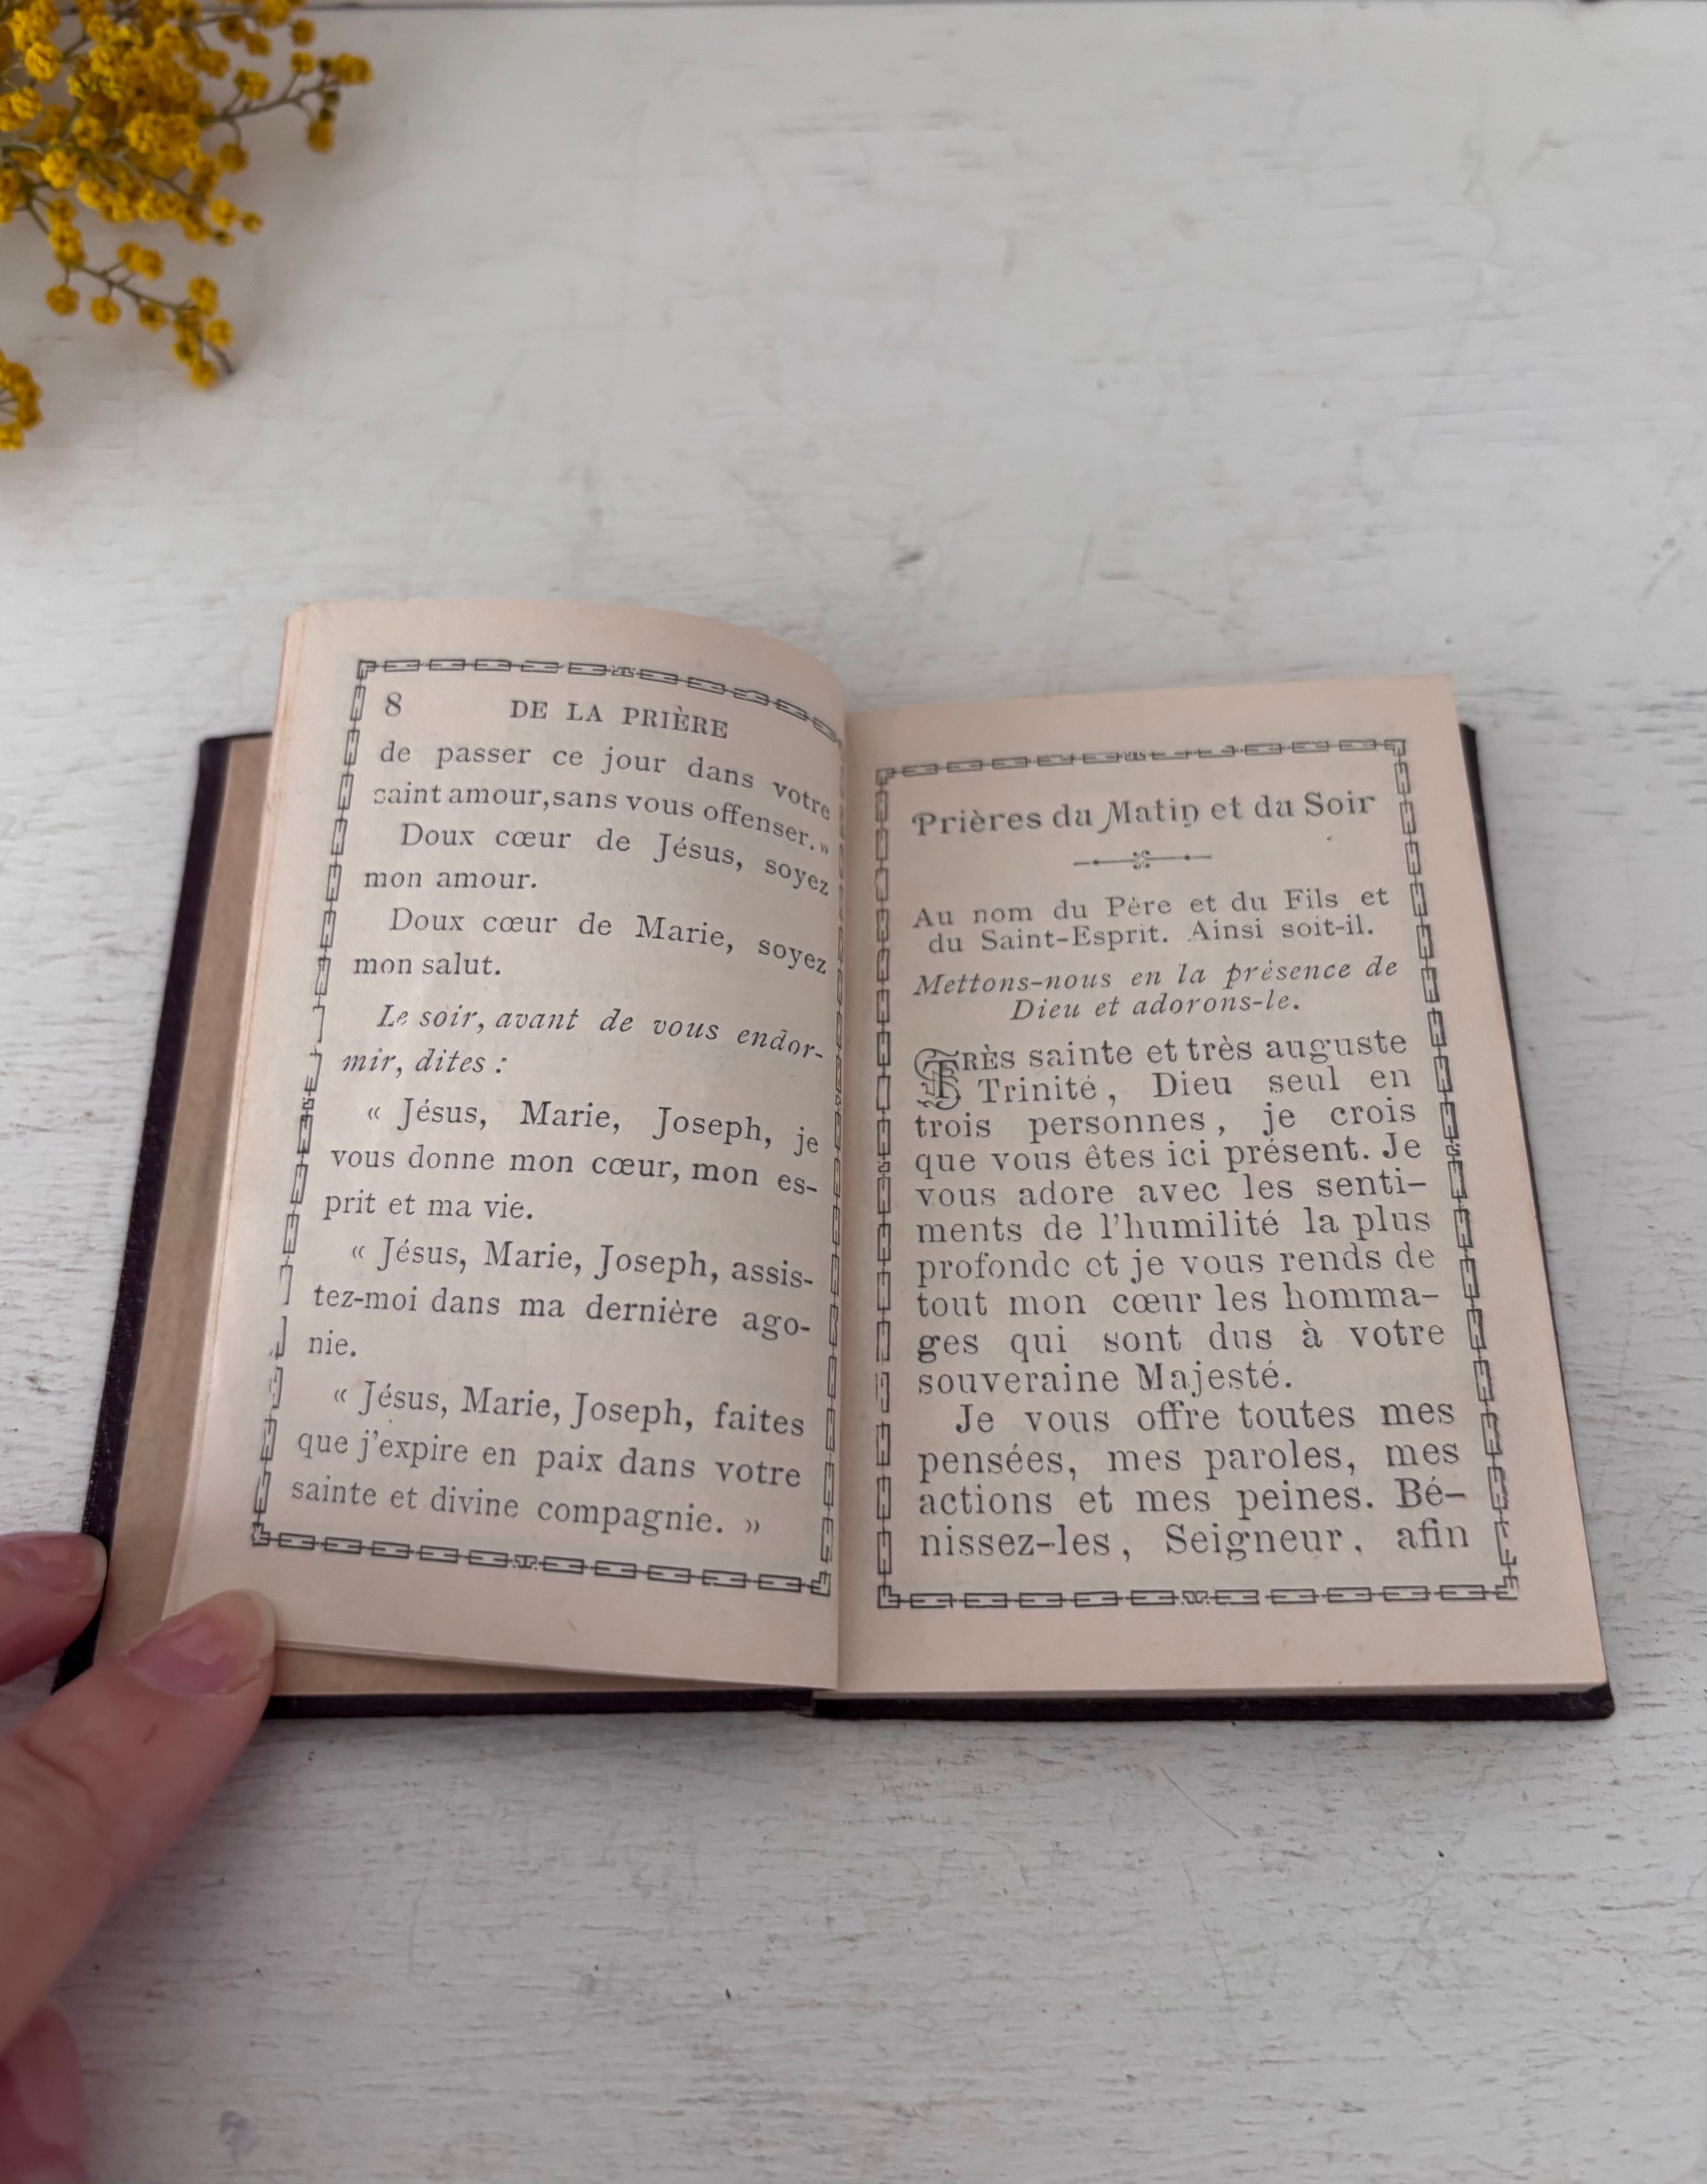 8 DE LA PRIÈRE
de passer ce jour dans votre
saint amour, sans vous offenser. »
Doux cœur de Jésus, soyez
mon amour.
Doux cœur de Marie, soyez
mon salut.
Le soir, avant de vous endor-
mir, dites :
« Jésus, Marie, Joseph, je
vous donne mon cœur, mon es-
prit et ma vie.
« Jésus, Marie, Joseph, assis-
tez-moi dans ma dernière ago-
nie.
« Jésus, Marie, Joseph, faites
que j'expire en paix dans votre
sainte et divine compagnie. »
Prières du Matin et du Soir
Au nom du Père et du Fils et
du Saint-Esprit. Ainsi soit-il.
Mettons-nous en la présence de
Dieu et adorons-le.
TRÈS sainte et très auguste
Trinité, Dieu seul en
trois personnes, je crois
que vous êtes ici présent. Je
vous adore avec les senti-
ments de l'humilité la plus
profonde et je vous rends de
tout mon cœur les homma-
ges qui sont dus à votre
souveraine Majesté.
Je vous offre toutes mes
pensées, mes paroles, mes
actions et mes peines. Bé-
nissez-les, Seigneur, afin